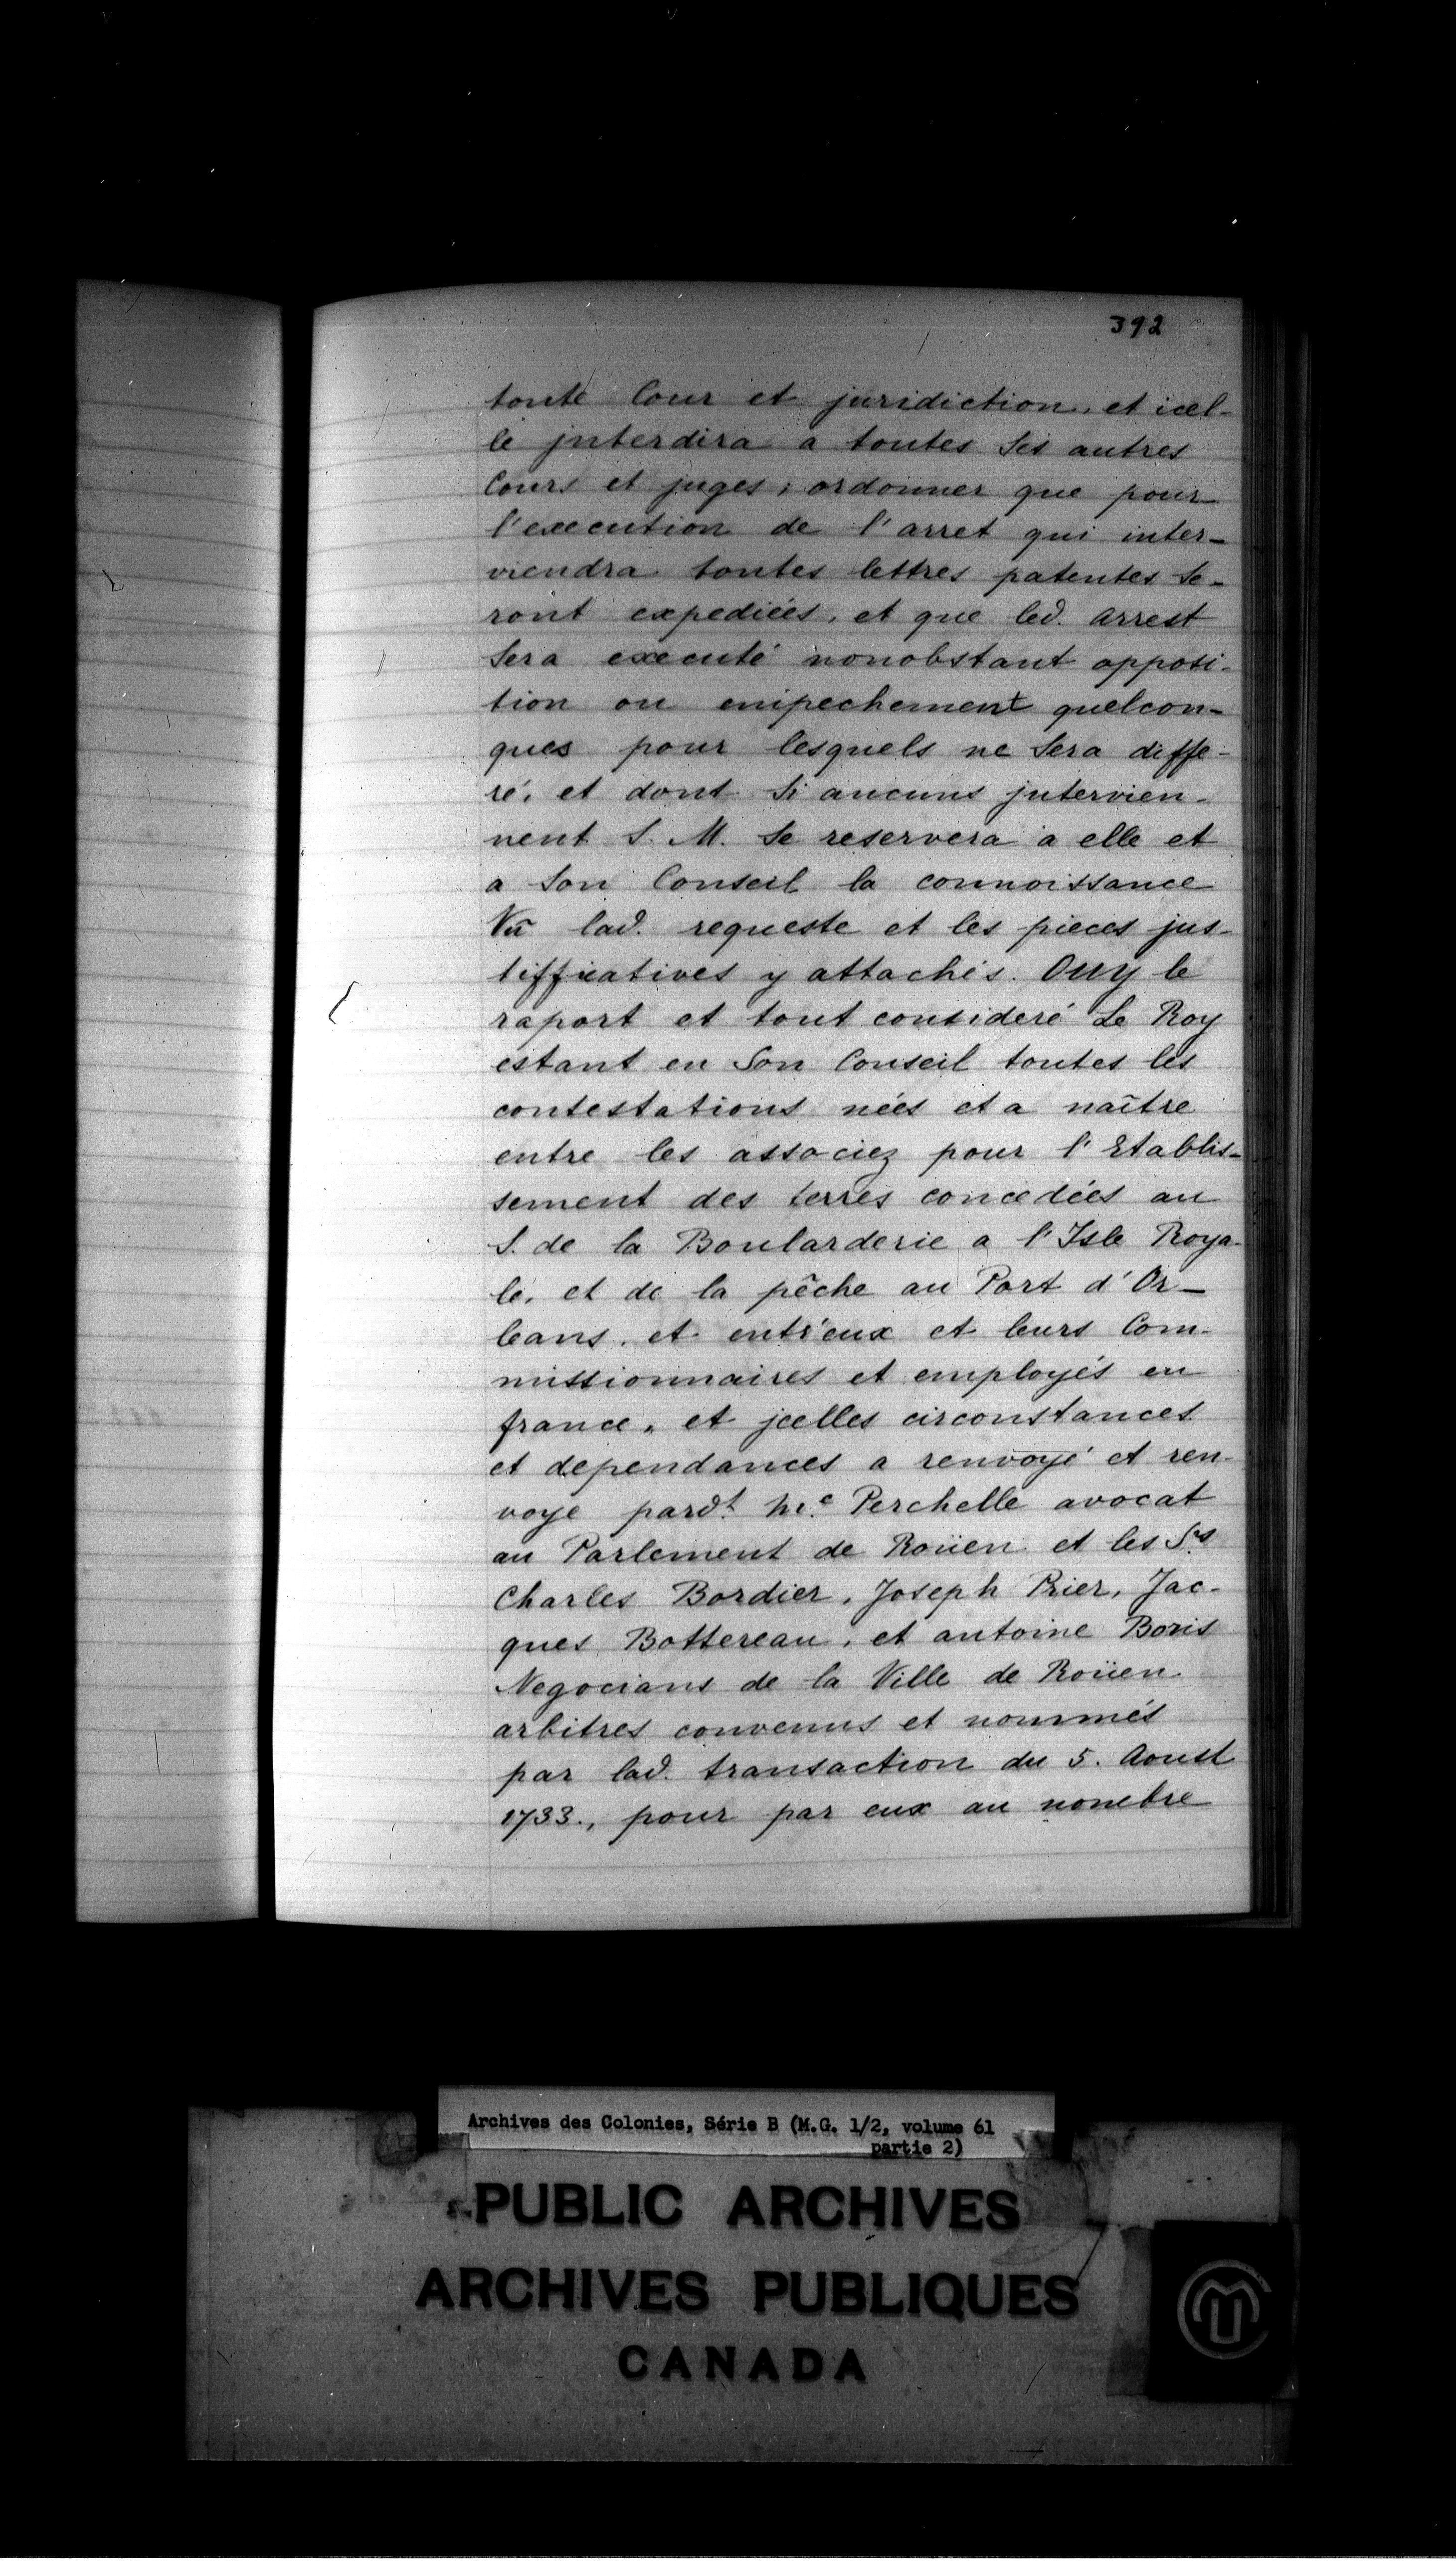 392
toute Cour et juridiction, et icel-
le jnterdira a toutes Ses autres
Cours et juges; ordonner que pour
l'execution de l'arret qui inter-
viendra toutes lettres patentes Se-
ront expediées, et que led. arrest
Sera executé nonobstant opposi-
tion ou empechement quelcon-
ques pour lesquels ne Sera diffe-
ré, et dont Si aucuns jntervien-
nent S. M. Se reservera a elle et
a Son Conseil la connoissance
Vû lad. requeste et les pieces jus-
tifficatives y attachés. Ouy le
raport et tout consideré Le Roy
estant en Son Conseil toutes les
contestations nées et a naître
entre les associez pour l'Etablis-
sement des terres concedées au
S. de la Boularderie a l'Isle Roya-
le, et de la pêche au Port d'Or-
leans, et entr'eux et leurs Com-
missionnaires et employés en
france, et jcelles circonstances
et dependances a renvoyé et ren-
voye pardt. Me. Perchelle avocat
au Parlement de Roüen et les Srs
Charles Bordier, Joseph Prier, Jac-
ques Bottereau, et antoine Boris
Negocians de la Ville de Roüen
arbitres convenus et nommés
par lad. transaction du 5. Aoust
1733., pour par eux au nombre
Archives des Colonies, Série B (M.G. 1/2, volume 61
partie 2)
PUBLIC ARCHIVES
ARCHIVES PUBLIQUES
CANADA